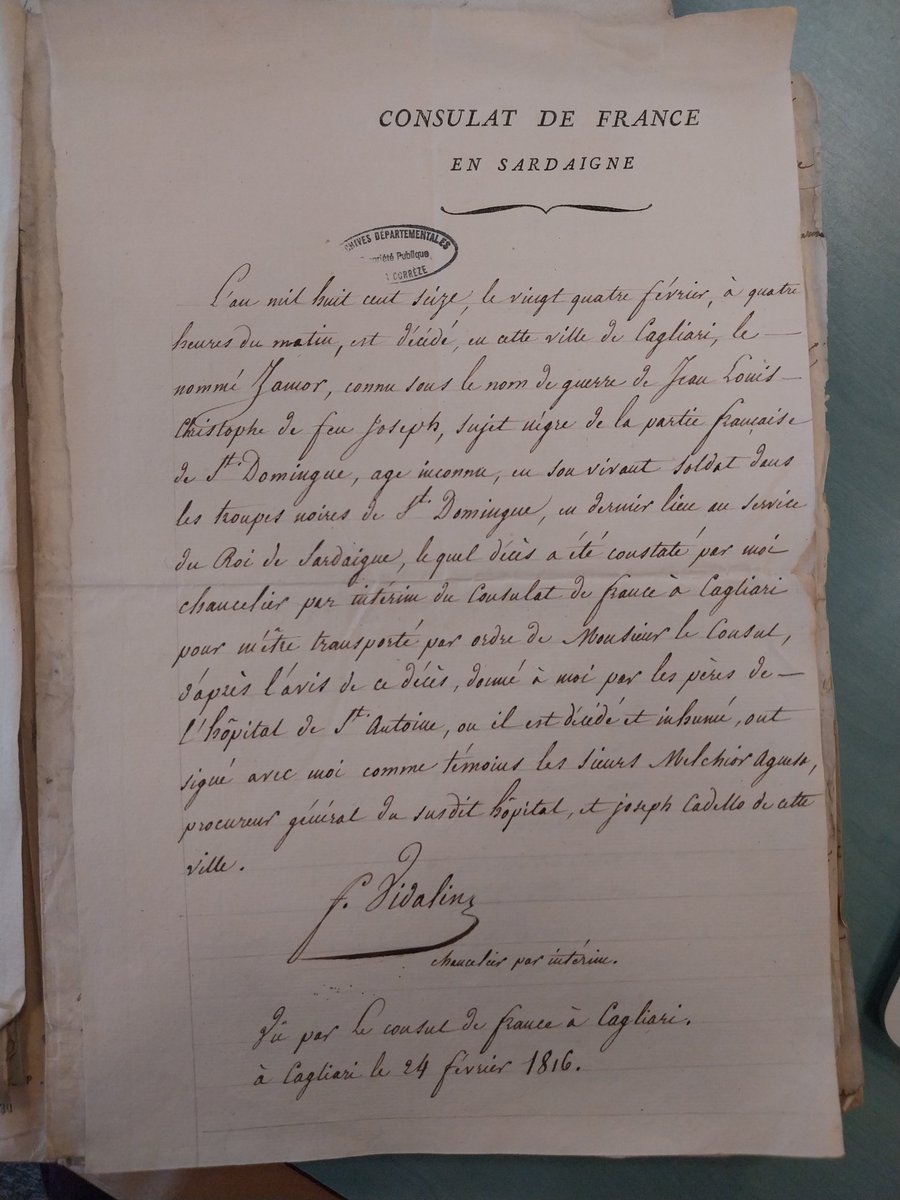 CONSULAT DE FRANCE
EN SARDAIGNE
CHIVES DÉPARTEMENTALES
riété Publique
CORRÈZE
L'an mil huit cent seize, le vingt quatre février, à quatre
heures du matin, est décédé, en cette ville de Cagliari, le —
nommé Zamor, connu sous le nom de guerre de Jean Louis —
Christophe de feu Joseph, sujet nègre de la partie française
de St. Domingue, age inconnu, en son vivant soldat dans
les troupes noires de St. Domingue, en dernier lieu au service
du Roi de Sardaigne, le quel décès a été constaté par moi
chancelier par intérim du Consulat de france à Cagliari
pour m'être transporté par ordre de Monsieur le Consul,
d'après l'avis de ce décès, donné à moi par les pères de —
l'hôpital de St. Antoine, ou il est décédé et inhumé, ont
signé avec moi comme témoins les sieurs Melchior Agnesa,
procureur général du susdit hôpital, et joseph Cadello de cette
ville.
f. Vidalin
chancelier par intérim.
Vû par le consul de france à Cagliari.
à Cagliari le 24 février 1816.